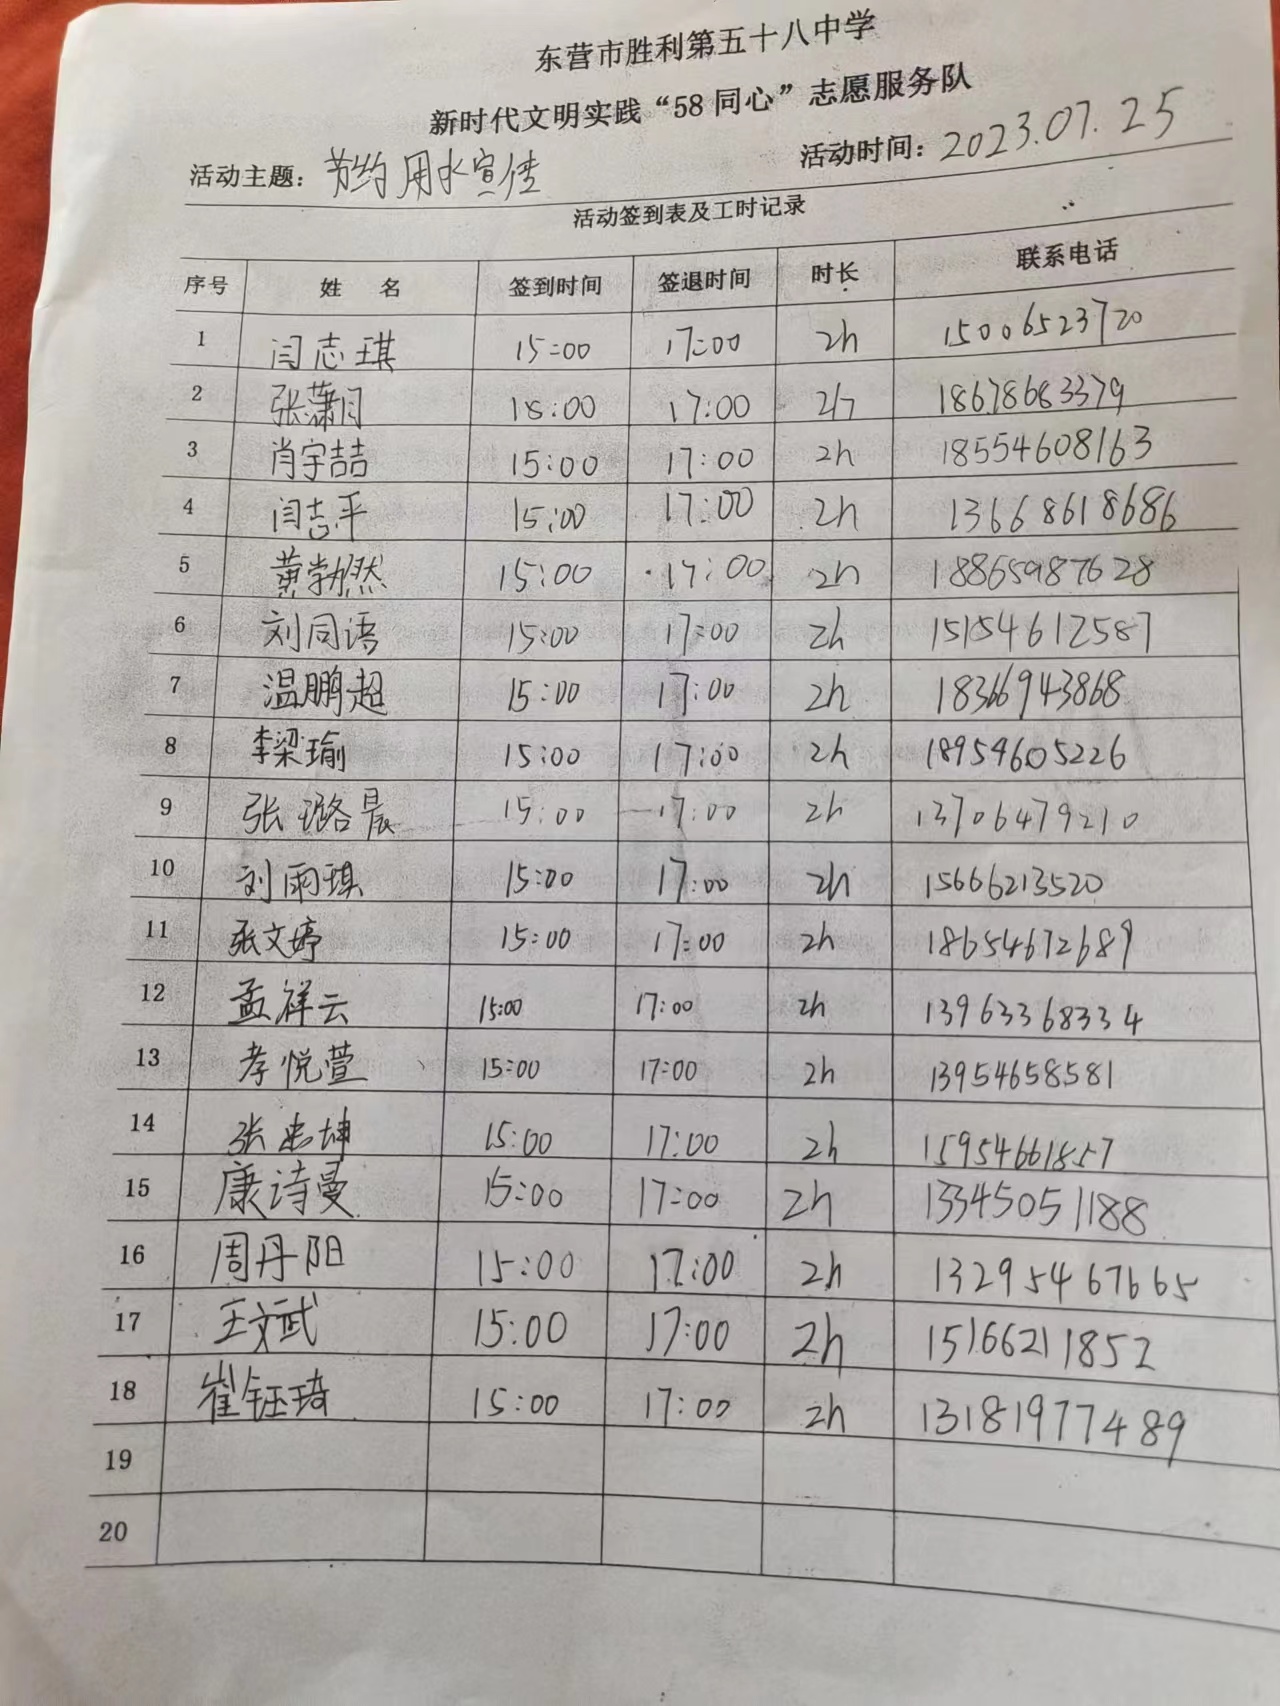 东营市胜利第五十八中学
新时代文明实践“58同心”志愿服务队
活动主题：节约用水宣传 活动时间：2023.07.25
活动签到表及工时记录
序号 姓 名 签到时间 签退时间 时长 联系电话
1 闫志琪 15:00 17:00 2h 15006523720
2 张潇月 15:00 17:00 2h 18678683379
3 肖宇喆 15:00 17:00 2h 18554608163
4 闫志平 15:00 17:00 2h 13668618686
5 黄勃然 15:00 17:00 2h 18865987628
6 刘同语 15:00 17:00 2h 15154612587
7 温鹏超 15:00 17:00 2h 18366943868
8 李梁瑜 15:00 17:00 2h 18954605226
9 张璐晨 15:00 17:00 2h 13706479210
10 刘雨琪 15:00 17:00 2h 15666213520
11 张文婷 15:00 17:00 2h 18654672689
12 孟祥云 15:00 17:00 2h 13963368334
13 李悦萱 15:00 17:00 2h 13954658581
14 张忠坤 15:00 17:00 2h 15954661857
15 康诗曼 15:00 17:00 2h 13345051188
16 周丹阳 15:00 17:00 2h 13295467665
17 王文武 15:00 17:00 2h 15166211852
18 崔钰琦 15:00 17:00 2h 13181977489
19
20